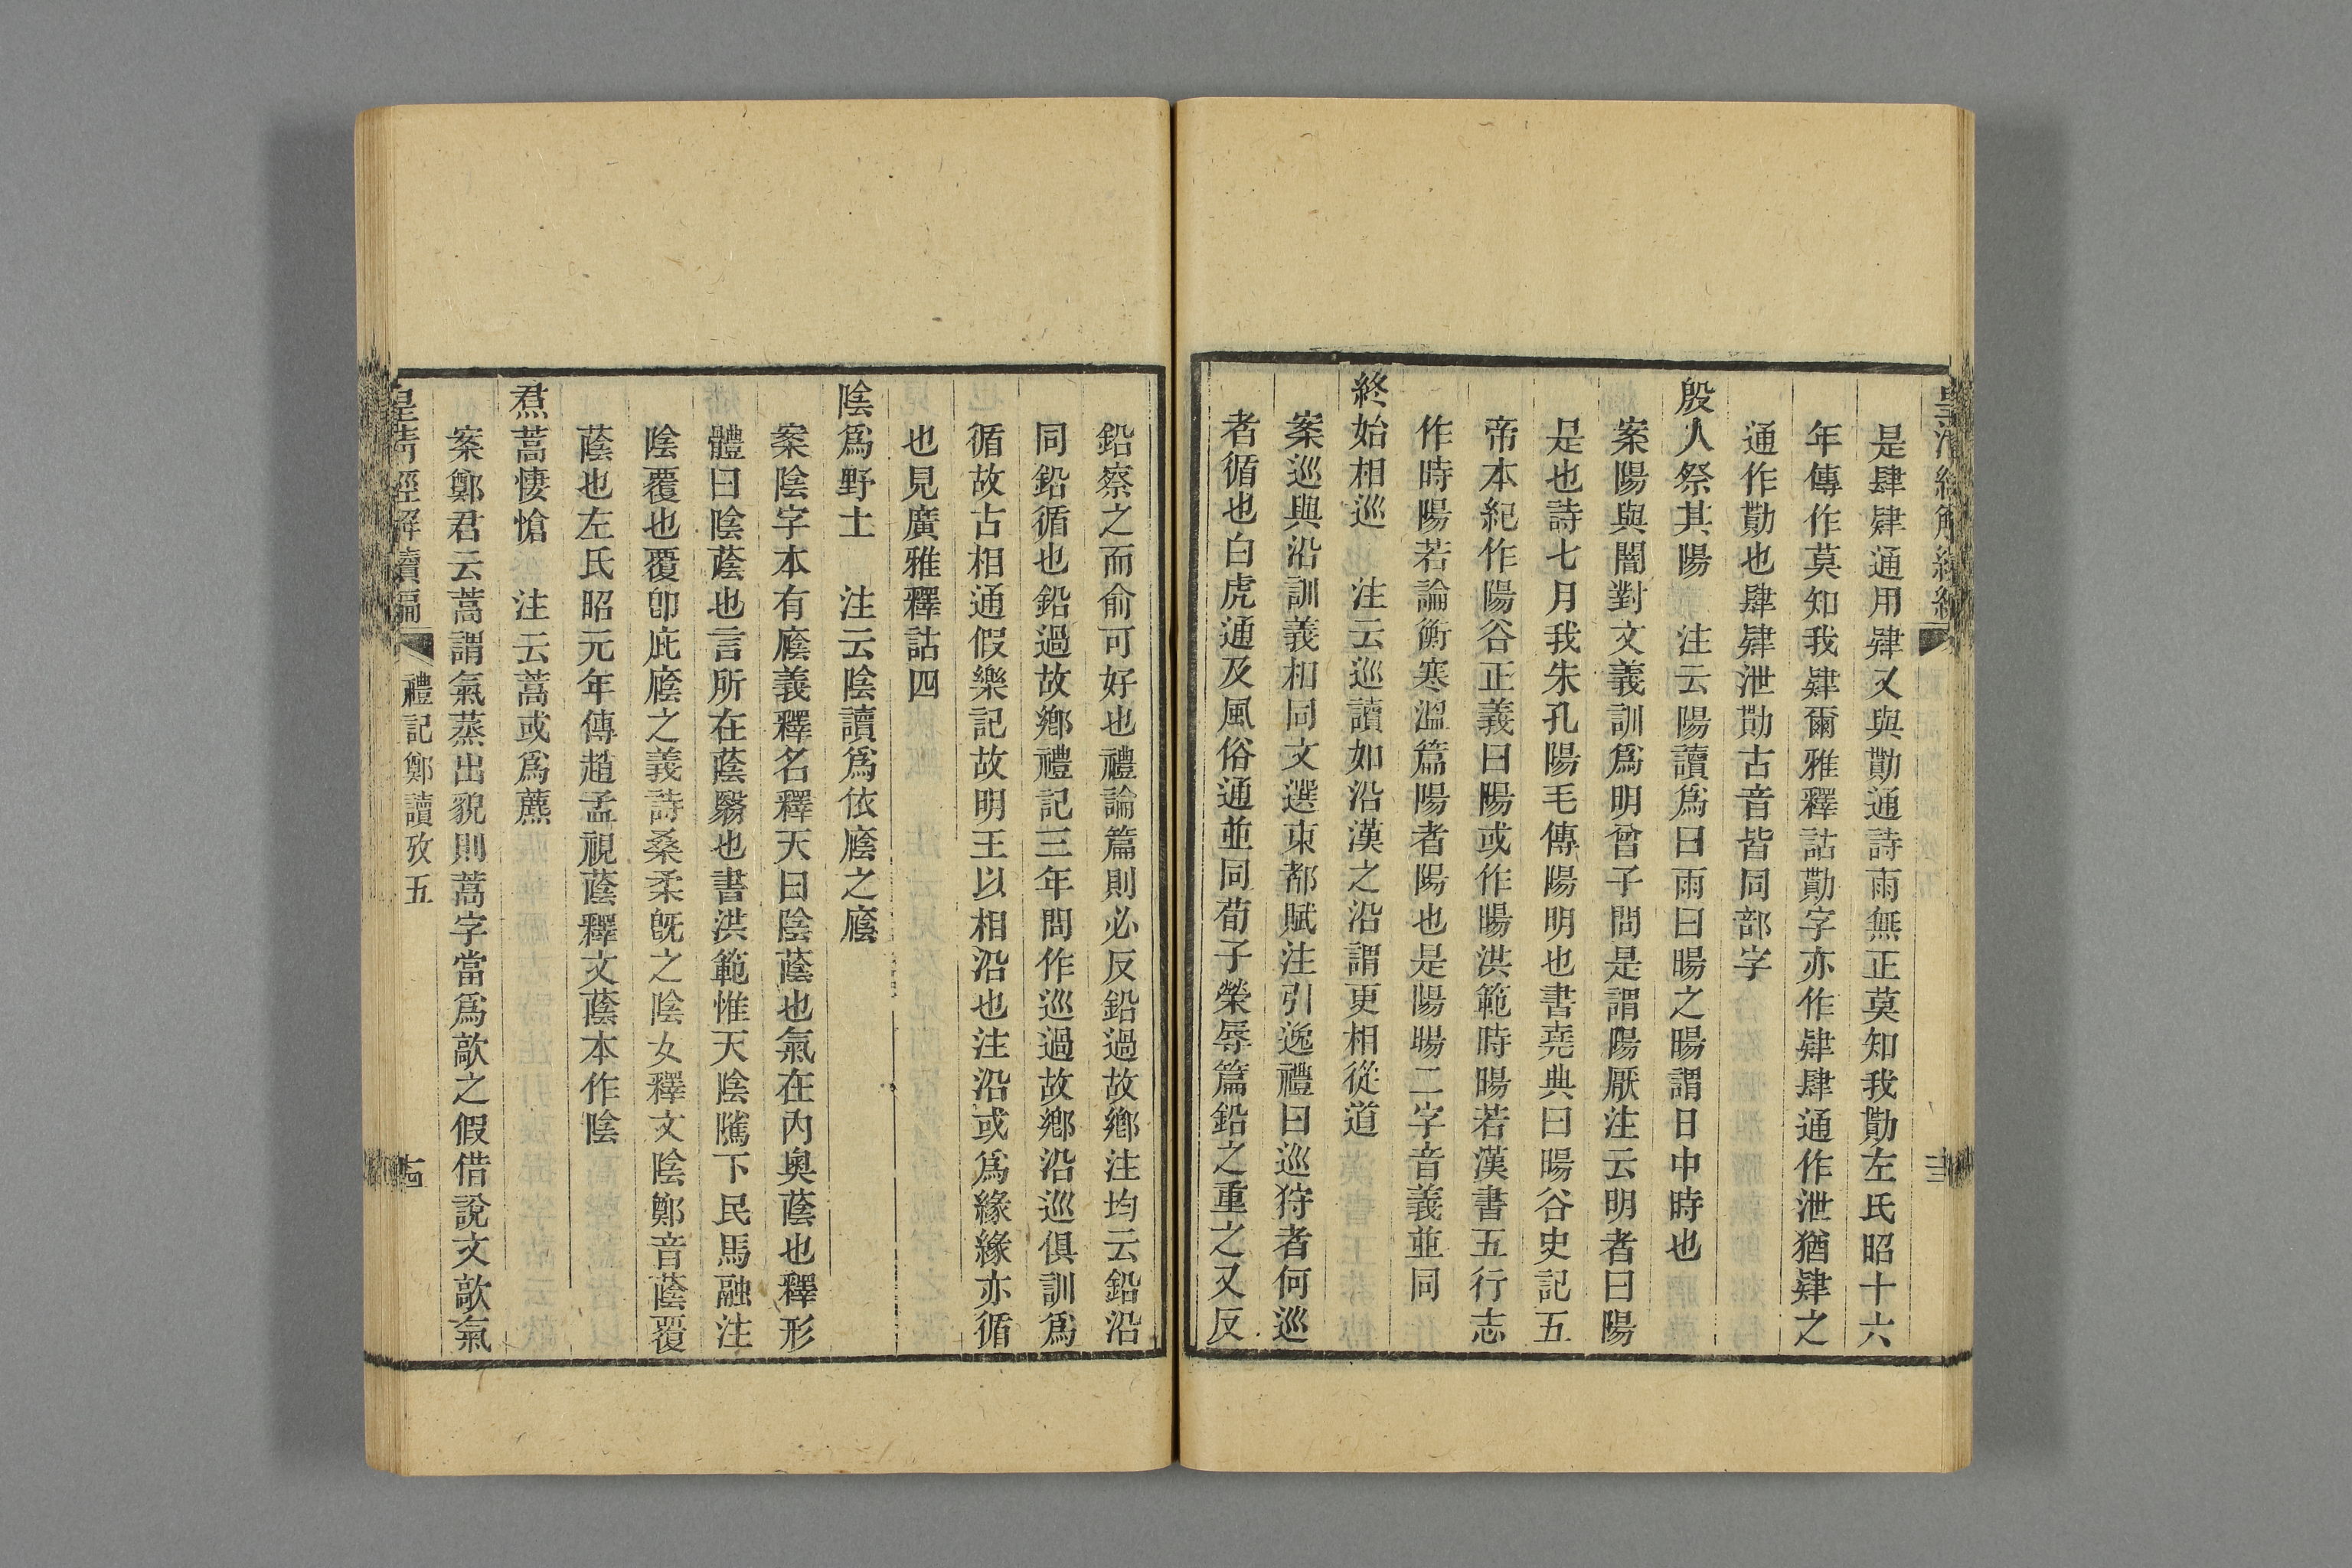 是肆肄通用肄又與勩通詩雨無正莫知我勩左氏昭十六
年傳作莫知我肄爾雅釋詁勩字亦作肄肆通作泄猶肄之
通作勩也肆肄泄勩古音皆同部字
殷人祭其陽　注云陽讀爲曰雨曰暘之暘謂日中時也
案陽與闇對文義訓爲明曾子問是謂陽厭注云明者曰陽
是也詩七月我朱孔陽毛傳陽明也書堯典曰暘谷史記五
帝本紀作陽谷正義曰陽或作暘洪範時暘若漢書五行志
作時陽若論衡寒溫篇陽者陽也是陽暘二字音義並同
終始相巡　注云巡讀如沿漢之沿謂更相從道
案巡與沿訓義相同文選東都賦注引逸禮曰巡狩者何巡
者循也白虎通及風俗通並同荀子榮辱篇鉛之重之又反
鉛察之而俞可好也禮論篇則必反鉛過故鄉注均云鉛沿
同鉛循也鉛過故鄉禮記三年問作巡過故鄉沿巡俱訓爲
循故古相通假樂記故明王以相沿也注沿或爲緣緣亦循
也見廣雅釋詁四
陰爲野土　注云陰讀爲依廕之廕
案陰字本有廕義釋名釋天曰陰蔭也氣在內奧蔭也釋形
體曰陰蔭也言所在蔭翳也書洪範惟天陰騭下民馬融注
陰覆也覆卽庇廕之義詩桑柔旣之陰女釋文陰鄭音蔭覆
蔭也左氏昭元年傳趙孟視蔭釋文蔭本作陰
焄蒿悽愴　注云蒿或爲藨
案鄭君云蒿謂氣蒸出貌則蒿字當爲歊之假借說文歊氣
皇清經解續編　禮記鄭讀攷五　十四